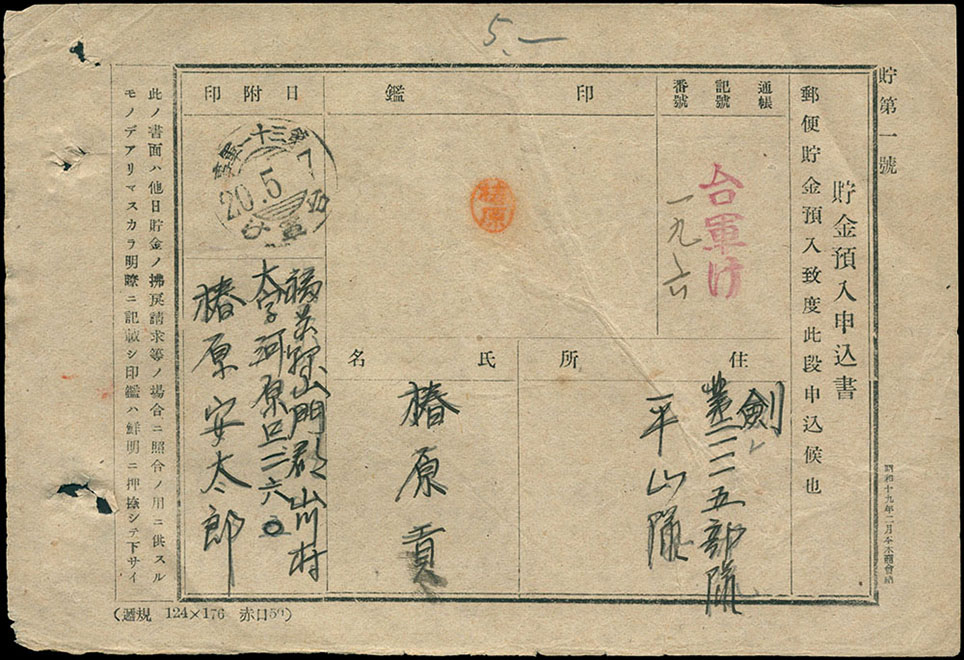 5.—
貯第一號
貯金預入申込書
郵便貯金預入致度此段申込候也
通帳
記號
番號
台軍け
一九六
印鑑
椿原
日附印
20.5.7
住所
劍
第二一五部隊
平山隊
氏名
椿原貢
福岡縣山門郡山川村
大字河原口二六〇
椿原安太郎
此ノ書面ハ他日貯金ノ拂戾請求等ノ場合ニ照合ノ用ニ供スル
モノデアリマスカラ明瞭ニ記載シ印鑑ハ鮮明ニ押捺シテ下サイ
昭和十九年二月
(遞規 124×176 赤口50)